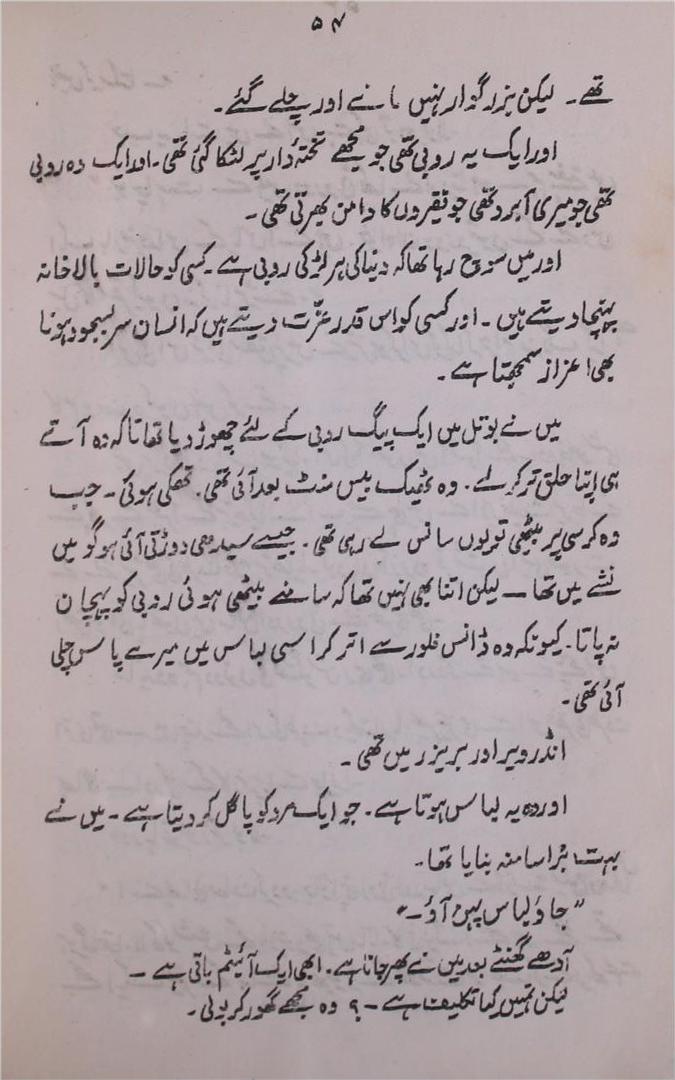 ۵۴
تھے۔ لیکن بزرگوار نہیں مانے اور چلے گئے۔
اور ایک یہ روبی تھی جو مجھے تختۂ دار پر لٹکا گئی تھی۔ اور ایک وہ روبی
تھی جو میری آبرو تھی جو فقیروں کا دامن بھرتی تھی۔
اور میں سوچ رہا تھا کہ دنیا کی ہر لڑکی روبی ہے۔ کسی کو حالات بالاخانہ
پہنچا دیتے ہیں۔ اور کسی کو اس قدر عزّت دیتے ہیں کہ انسان سر بسجود ہونا
بھی اعزاز سمجھتا ہے۔
میں نے بوتل میں ایک پیگ روبی کے لئے چھوڑ دیا تھا تا کہ وہ آتے
ہی اپنا حلق تر کر لے۔ وہ ٹھیک بیس منٹ بعد آئی تھی۔ تھکی ہوئی۔ جب
وہ کرسی پر بیٹھی تو یوں سانس لے رہی تھی۔ جیسے سیدھی دوڑتی آئی ہو گو میں
نشے میں تھا — لیکن اتنا بھی نہیں تھا کہ سامنے بیٹھی ہوئی روبی کو پہچان
نہ پاتا۔ کیونکہ وہ ڈانس فلور سے اتر کر اسی لباس میں میرے پاس چلی
آئی تھی۔
انڈرویر اور بریزر میں تھی۔
اور وہ یہ لباس ہوتا ہے۔ جو ایک مرد کو پاگل کر دیتا ہے۔ میں نے
بہت بُرا سا منہ بنایا تھا۔
"جاؤ لباس پہن آؤ۔"
آدھے گھنٹے بعد میں نے پھر جانا ہے۔ ابھی ایک آئیٹم باقی ہے —
لیکن تمہیں کیا تکلیف ہے — ؟ وہ مجھے گھور کر بولی۔